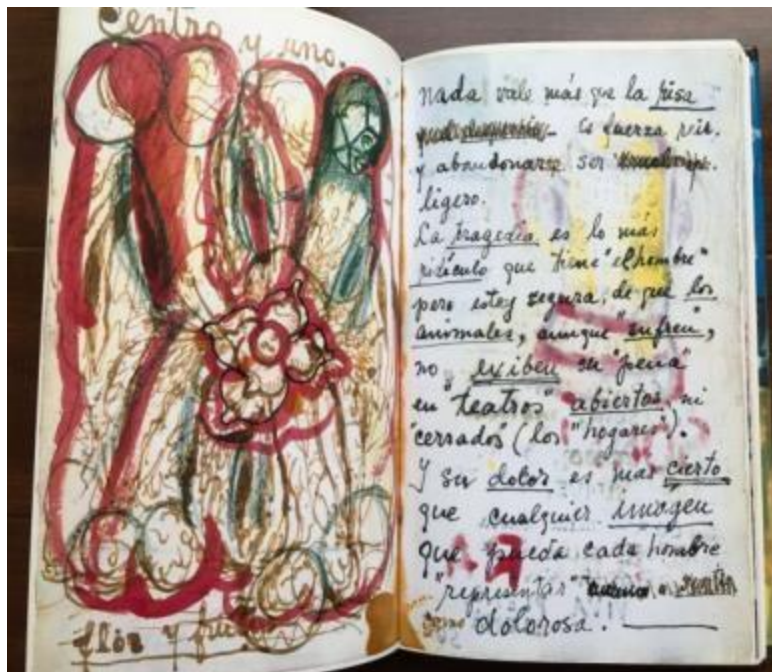 Centro y uno.
flor y fruto
Nada vale más que la risa
Es fuerza reir.
y abandonarse ser
ligero.
La tragedia es lo más
ridículo que tiene "el hombre"
pero estoy segura, de que los
animales, aunque "sufren",
no exiben su "pena"
en "teatros" abiertos, ni
"cerrados" (los "hogares").
Y su dolor es más cierto
que cualquier imágen
que pueda cada hombre
"representar"
como dolorosa.